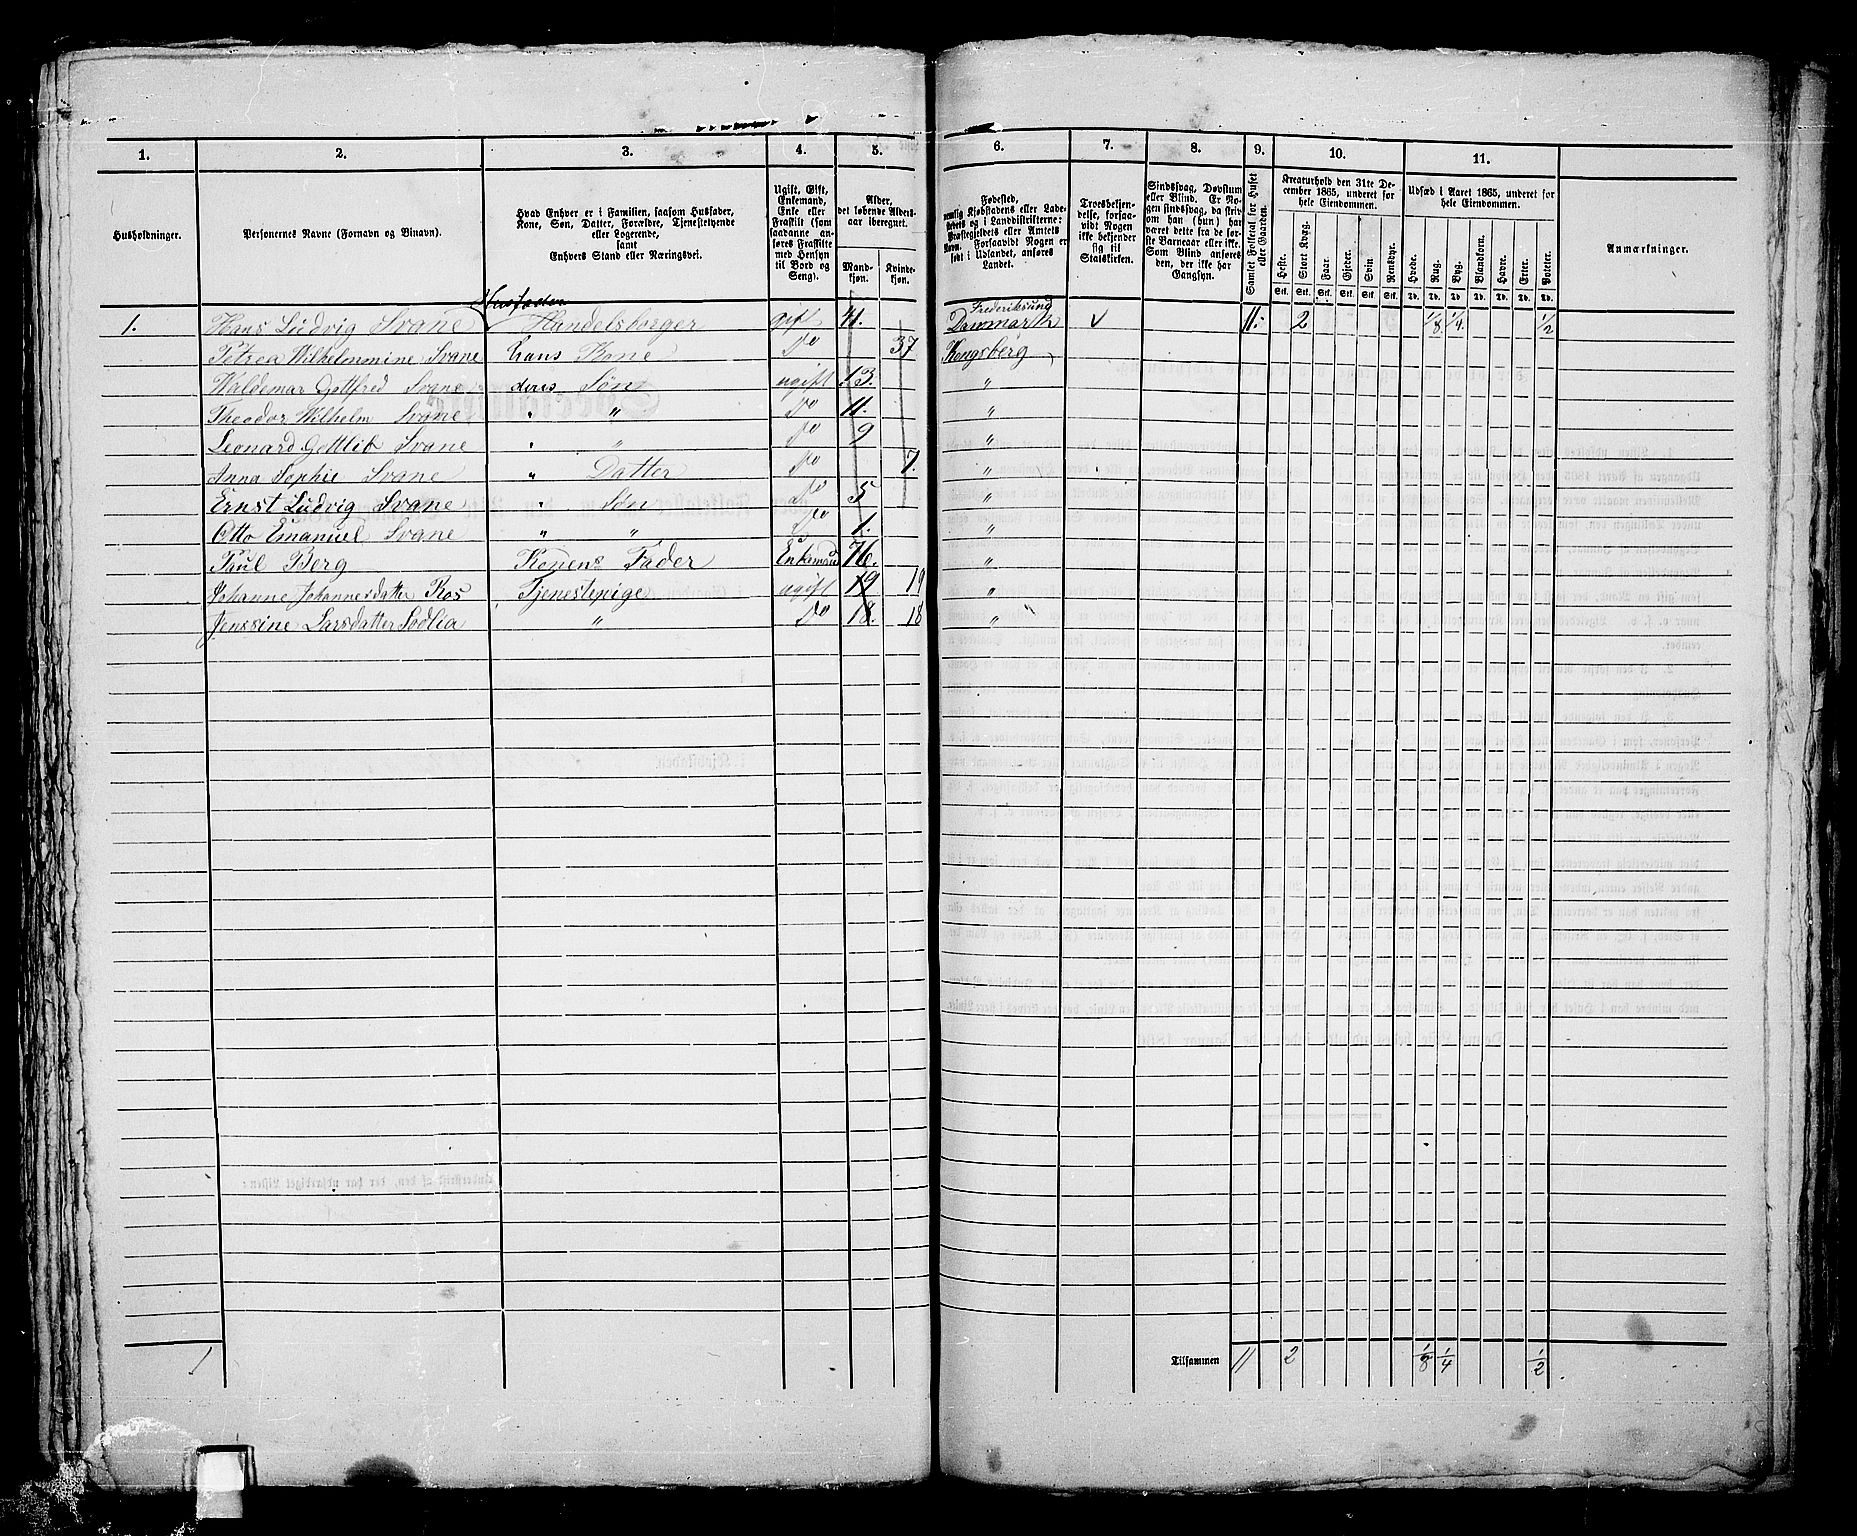 1. 2. 3. 4. 5. 6. 7. 8. 9. 10. 11.
Husholdninger.
Personernes Navne (Fornavn og Binavn).
Hvad Enhver er i Familien, saasom Husfader,
Kone, Søn, Datter, Forældre, Tjenestetyende
eller Logerende,
samt
Enhvers Stand eller Næringsvei.
Ugift, Gift,
Enkemand,
Enke eller
Fraskilt (som
saadanne an-
føres Fraskilte
med Hensyn
til Bord og
Seng).
Alder,
det løbende Alders-
aar iberegnet.
Mand-
kjøn.
Kvinde-
kjøn.
Fødested,
nemlig Kjøbstadens eller Lade-
stedets og i Landdistrikterne:
Præstegjeldets eller Amtets
Navn. Forsaavidt Nogen er
født i Udlandet, anføres
Landet.
Troesbekjen-
delse, forsaa-
vidt Nogen
ikke bekjender
sig til
Statskirken.
Sindssvag, Døvstum
eller Blind. Er No-
gen sindssvag, da skriv
om han (hun) har
været dette fra de før-
ste Barneaar eller ikke.
Som Blind anføres
den, der ikke har
Gangsyn.
Samlet Folketal for Huset
eller Gaarden.
Kreaturhold den 31te De-
cember 1865, underet for
hele Eiendommen.
Heste. Stort Kvæg. Faar. Gjeder. Svin. Rensdyr.
Stk. Stk. Stk. Stk. Stk. Stk.
Udsæd i Aaret 1865, underet for
hele Eiendommen.
Hvede. Rug. Byg. Blandkorn. Havre. Erter. Poteter.
Td. Td. Td. Td. Td. Td. Td.
Anmærkninger.
Husfader Frederiksund
1. Hans Ludvig Svane Handelsborger gift 41. Danmark 11. 2 1/8 1/4. 1/2
Petrea Wilhelmmine Svane hans Kone Do 37 Kongsberg
Waldemar Gotfred Svane deres Søn ugift 13. "
Theodor Wilhelm Svane " " Do 11. "
Leonard Gottlib Svane " " Do 9 "
Anna Sophie Svane " Datter Do 7. "
Ernst Ludvig Svane " Søn Do 5 "
Otto Emanuel Svane " " Do 1. "
Paul Berg Konens Fader Enkemand 76. "
Johanne Johannesdatter Ros Tjenestepige ugift 19 19 "
Jenssine Larsdatter Sødlia " Do 18. 18 "
1 Tilsammen 11 2 1/8 1/4 1/2